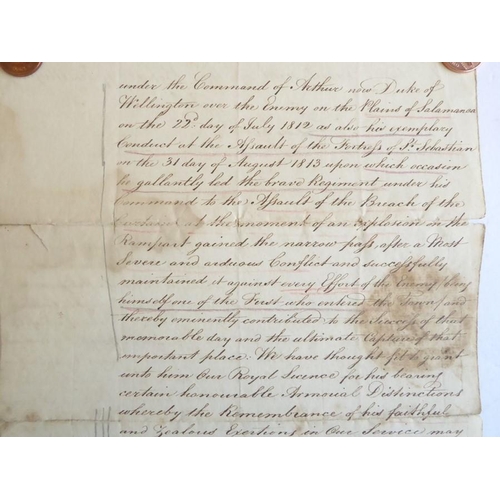 under the Command of Arthur now Duke of
Wellington over the Enemy on the Plains of Salamanca
on the 22d day of July 1812 as also his exemplary
Conduct at the Assault of the Fortress of St. Sebastian
on the 31 day of August 1813 upon which occasion
he gallantly led the brave Regiment under his
Command to the Assault of the Breach of the
Curtain at the moment of an Explosion on the
Rampart gained the narrow pass, after a Most
Severe and arduous Conflict and successfully
maintained it against every Effort of the Enemy being
himself one of the First who entered the Town and
thereby emenently contributed to the Success of that
memorable day and the ultimate Capture of that
important place. We have thought fit to grant
unto him Our Royal Licence for his bearing
certain honourable Armorial Distinctions
whereby the Remembrance of his faithful
and Zealous Exertions in Our Service may